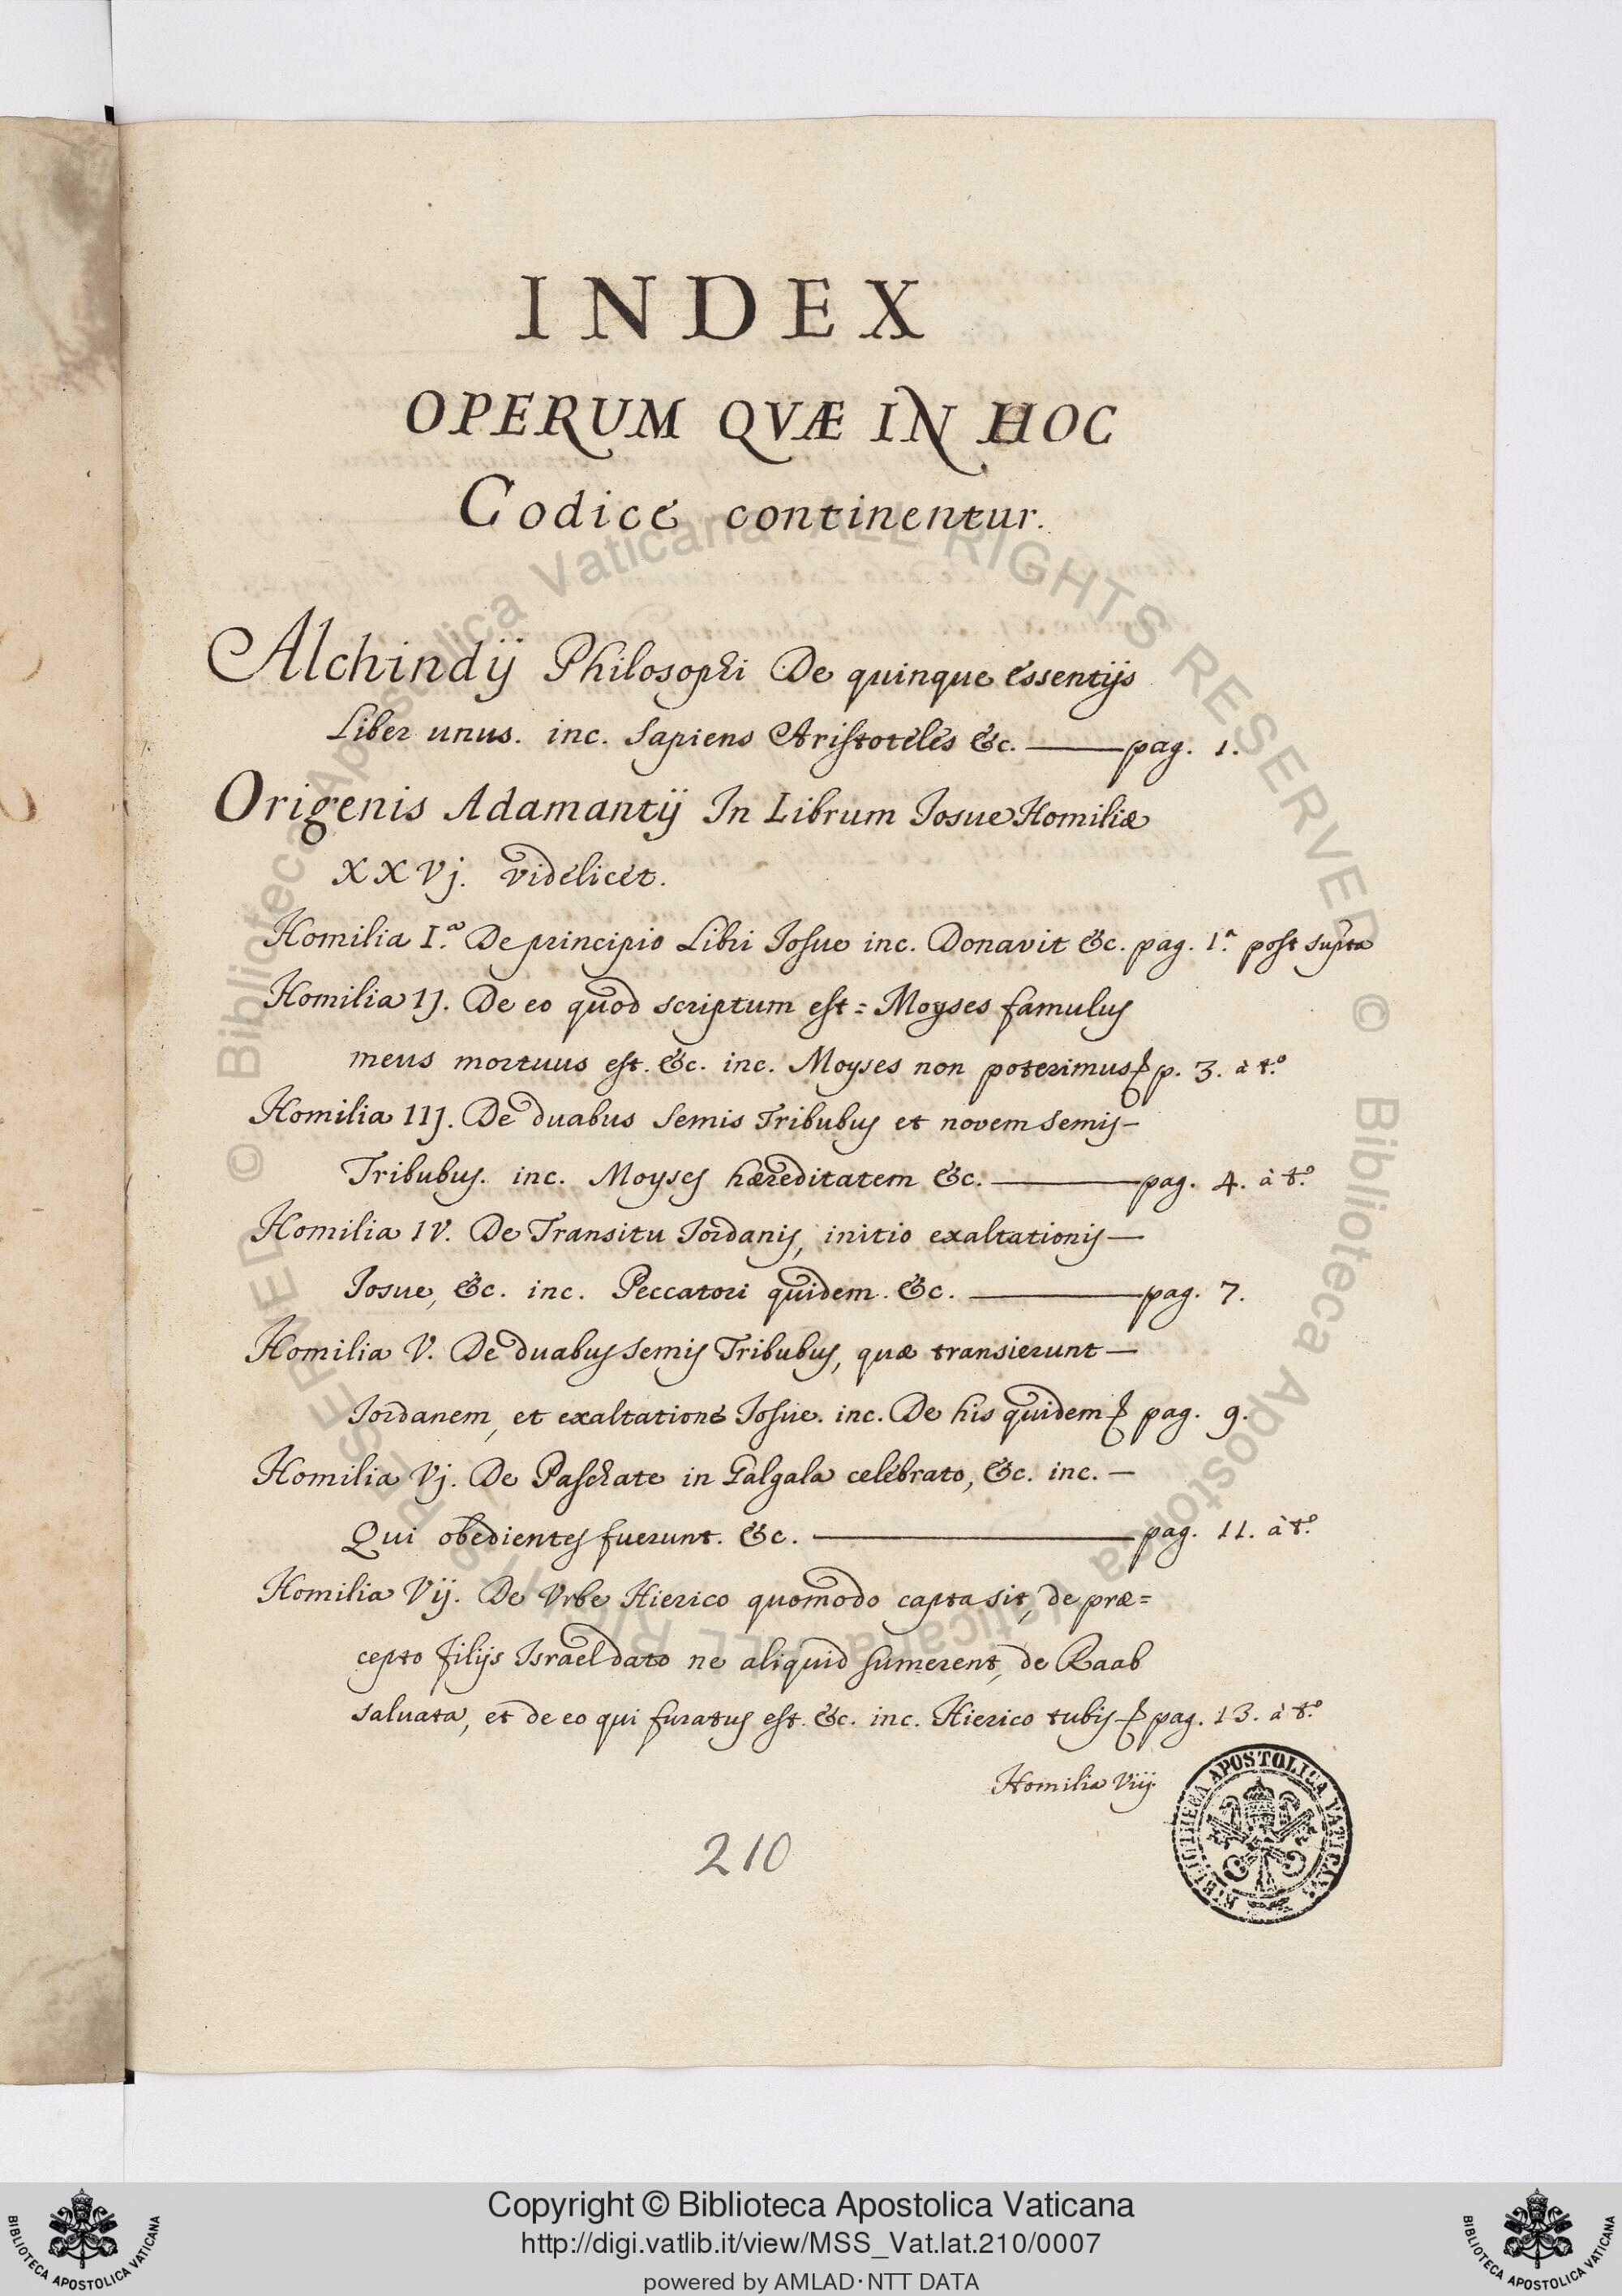 INDEX
OPERUM QVÆ IN HOC
Codice continentur.
Alchindij Philosophi De quinque essentijs
Liber unus. inc. Sapiens Aristoteles &c. ——— pag. 1.
Origenis Adamantij In Librum Josue Homiliæ
XXVj. videlicet.
Homilia I.ª De principio Libri Josue inc. Donavit &c. pag. 1.ª post supta
Homilia IJ. De eo quod scriptum est = Moyses famulus
meus mortuus est. &c. inc. Moyses non poterimus p. 3. à t.º
Homilia IIJ. De duabus semis Tribubus et novem semis –
Tribubus. inc. Moyses hæreditatem &c. ——— pag. 4. à t.º
Homilia IV. De Transitu Jordanis, initio exaltationis —
Josue, &c. inc. Peccatori quidem. &c. ——— pag. 7.
Homilia V. De duabus semis Tribubus, quæ transierunt —
Jordanem, et exaltatione Josue. inc. De his quidem pag. 9.
Homilia Vj. De Paschate in Galgala celebrato, &c. inc. —
Qui obedientes fuerunt. &c. ——— pag. 11. à t.º
Homilia Vij. De Vrbe Hierico quomodo capta sit, de præ=
cepto filijs Israel dato ne aliquid sumerent, de Raab
saluata, et de eo qui furatus est. &c. inc. Hierico tubis pag. 13. à t.º
Homilia Viij.
210
BIBLIOTHECA APOSTOLICA VATICANA
© Biblioteca Apostolica Vaticana ALL RIGHTS RESERVED
© Biblioteca Apostolica Vaticana ALL RIGHTS RESERVED
Copyright © Biblioteca Apostolica Vaticana
http://digi.vatlib.it/view/MSS_Vat.lat.210/0007
powered by AMLAD·NTT DATA
BIBLIOTECA APOSTOLICA VATICANA
BIBLIOTECA APOSTOLICA VATICANA